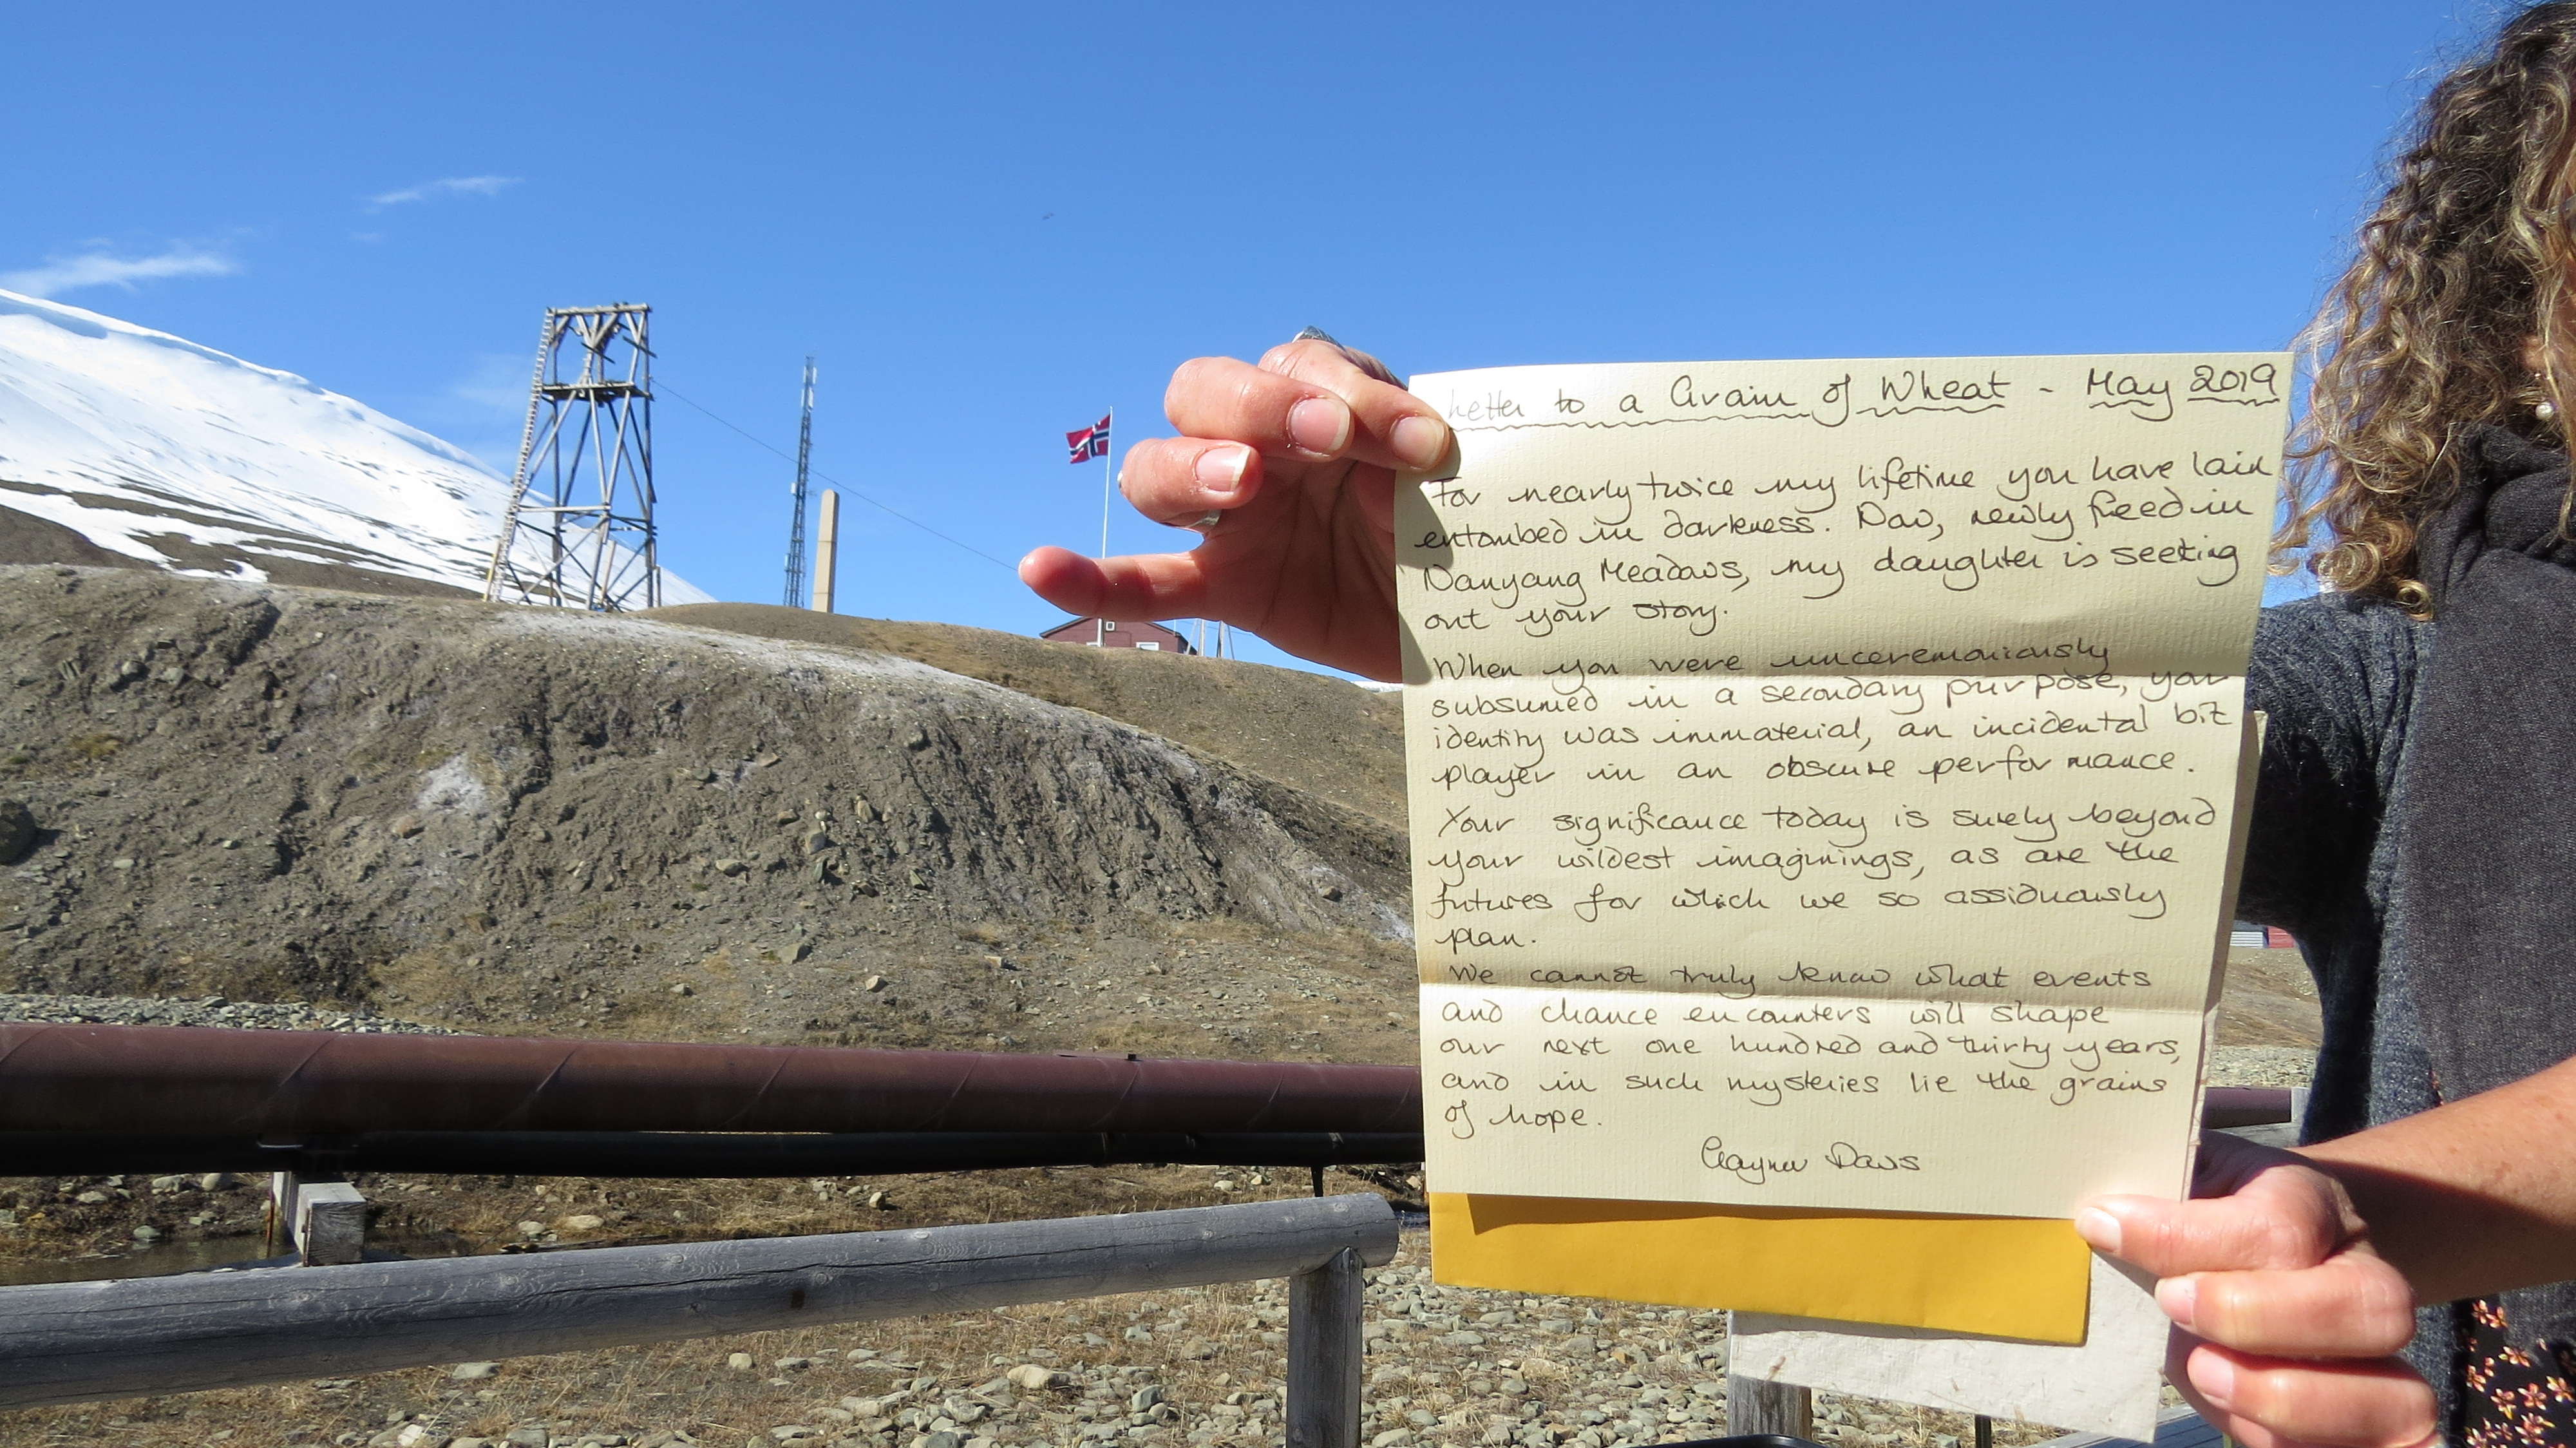 Letter to a Grain of Wheat - May 2019
For nearly twice my lifetime you have lain
entombed in darkness. Now, newly freed in
Nanyang Meadows, my daughter is seeking
out your story.
When you were unceremoniously
subsumed in a secondary purpose, your
identity was immaterial, an incidental bit
player in an obscure performance.
Your significance today is surely beyond
your wildest imaginings, as are the
futures for which we so assiduously
plan.
We cannot truly know what events
and chance encounters will shape
our next one hundred and thirty years,
and in such mysteries lie the grains
of hope.
Gaynor